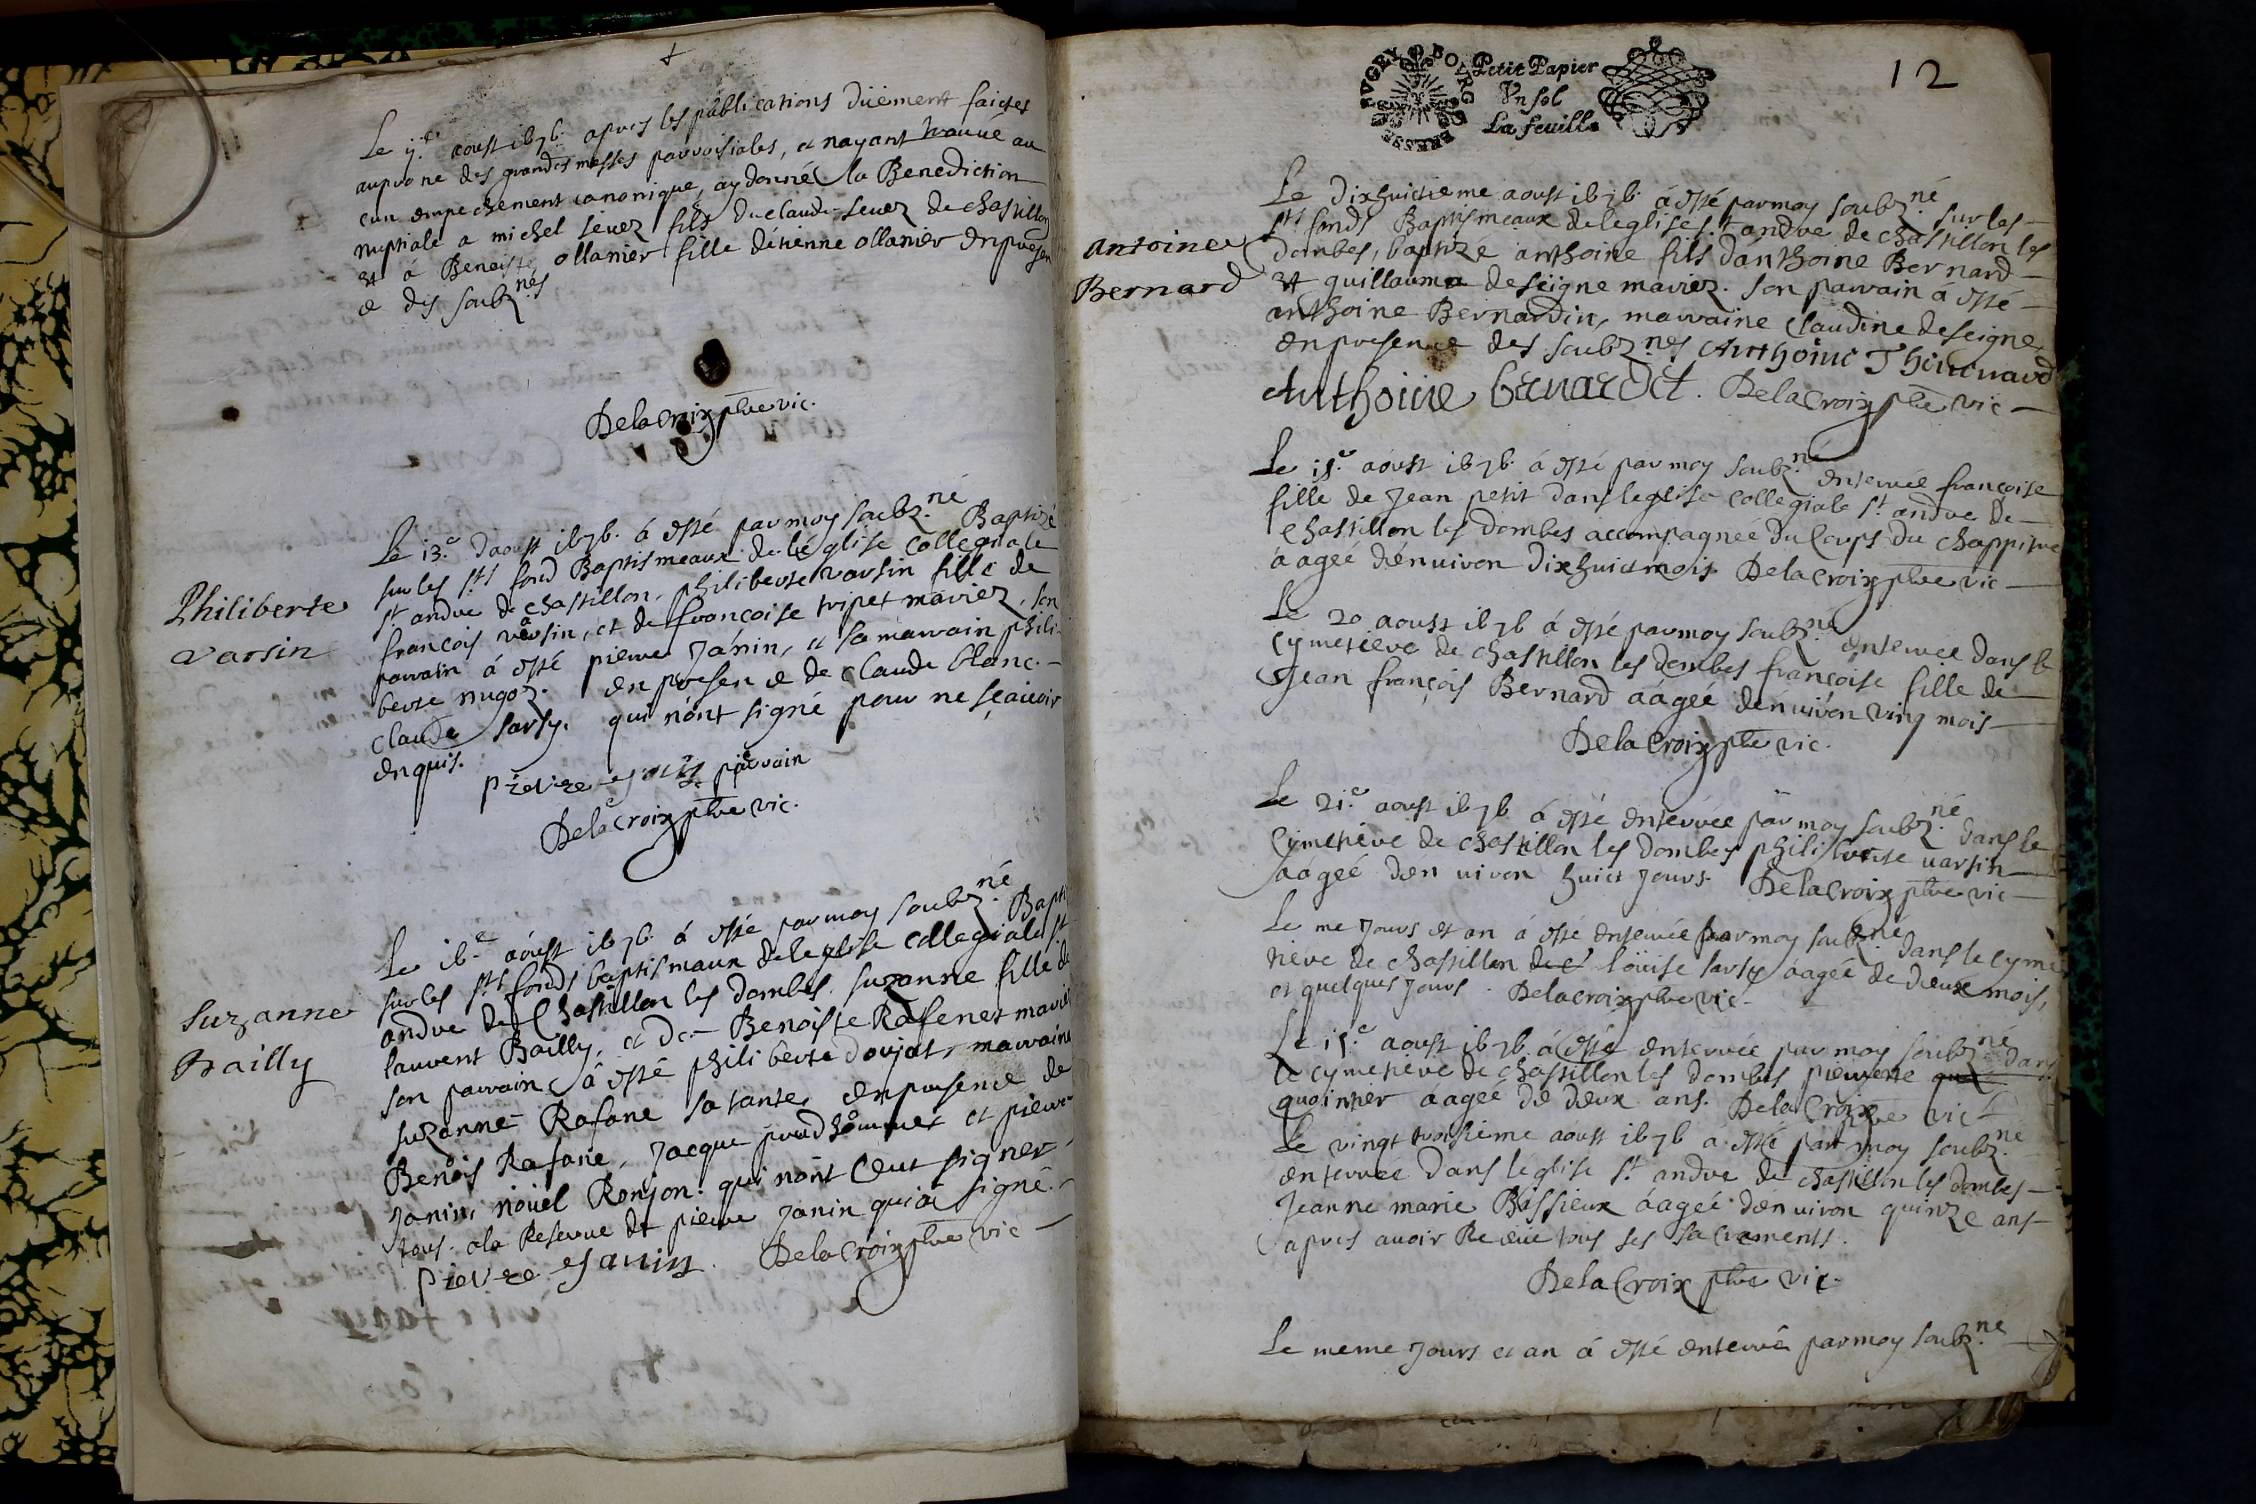 Le aoust 1676 apres les publications düement faictes
au prone des grandes messes parroisiales, et nayant trouvé au
cun empechement canonique, ay donné la Benediction
nuptiale a michel seuez fils de claude seuez de chastillon
et á Benoiste ollanier fille détienne ollanier en presen
ce des soubz.nés
Delacroix pbre vic.
Philiberte
varsin
Le 13.e daoust 1676. á esté par moy soubz.né Baptizé
sur les sts fond Baptismeaux de léglise collegiale
st andre de chastillon, philiberte varsin fille de
francois varsin, et de francoise tripet mariez, son
parrain á esté pierre Jánin, et sa marrain phili
berte nugoz. en presence de claude blanc.
claude sarsy. qui nónt signé pour ne sçauoir
enquis.
pierre janin parrain
Delacroix pbre vic.
Suzanne
Bailly
Le 16.e aóust 1676 á esté par moy soubz.né Bapti
sur les sts fonds baptismaux de leglise collegiale st
andre de Chastillon les dombes. suzanne fille de
laurent Bailly, et de Benoiste Rafenet mariez
son parrain á esté philiberte doujat, marraine
suzanne Rafane sa tante, en presence de
Benois Rafane, Jacque prudhommes et pierre
Janin, nöuel Ronjon. qui nónt sceut signer
tous. a la Reserue de pierre Janin qui á signé.
pierre janin. Delacroix pbre vic
BVGEY
Petit Papier
Vn sol
La feuille
12
Antoine
Bernard
Le dixhuictieme aoust 1676. á esté par moy soubz.né sur les
sts fonds Baptismeaux de leglise st andre de chastillon les
dombes, baptizé anthoine fils dánthoine Bernard
et guillauma deseigne mariez. son parrain á esté
anthoine Bernardin, marraine claudine deseigne,
en presence des soubz.nés Anthoine Thouenard
Anthoine bernardet. Delacroix pbre vic
Le 1 .e aóust 1676. á esté par moy soubz.né enterrée francoise
fille de Jean petit dans leglise collegiale st andre de
Chastillon les dombes accompagnée du Corps du chappitre
áageé dénuiron dixhuict mois Delacroix pbre vic
Le 20 aoust 1676 á esté par moy soubz.né enterrée dans le
cymetiere de chastillon les dombes francoise fille de
Jean françois Bernard áageé dénuiron vinq mois
Delacroix pbre vic.
Le 21.e aoust 1676 á esté enterrée par moy soubz.né dans le
cymetiere de chastillon les dombes philiberte varsin
áageé dénuiron huict Jours. Delacroix pbre vic
Le me Jours et an á esté enterrée par moy soubz.né dans le cyme
tiere de chastillon de c löuise sarsy áageé de deux mois,
et quelques Jours. Delacroix pbre vic
Le 1 .e aoust 1676. á esté enterrée par moy soubz.né dans
le cymetiere de chastillon les dombes pierrette que
quointier áageé de deux ans. Delacroix pbre vic
Le vingt troisieme aoust 1676 a esté par moy soubz.né
enterrée dans léglise st andre de chastillon les dombes
Jeanne marie Bassieux áageé dénuiron quinze ans
apres auoir Receue tous ses sacrements.
Delacroix pbre vic.
Le meme Jours et an á esté enterré par moy soubz.né